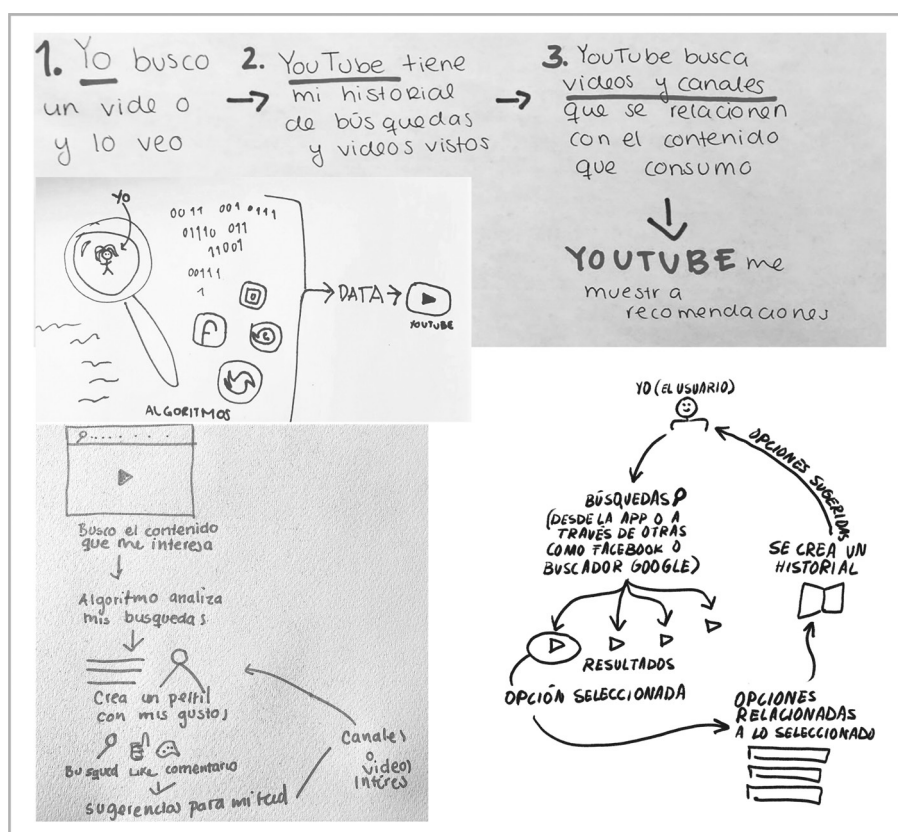 1. Yo busco
un video
y lo veo
→
2. YouTube tiene
mi historial
de búsquedas
y videos vistos
→
3. YouTube busca
videos y canales
que se relacionen
con el contenido
que consumo
YOUTUBE me
muestra
recomendaciones
Yo
0011 001 0111
01110 011
11001
00111
1
ALGORITMOS
DATA
YOUTUBE
Busco el contenido
que me interesa
Algoritmo analiza
mis busquedas
Crea un perfil
con mis gustos
Busqued Like comentario
sugerencias para mi feed
Canales
o
videos
Intéres
YO (EL USUARIO)
BÚSQUEDAS
(DESDE LA APP O A
TRAVÉS DE OTRAS
COMO FACEBOOK O
BUSCADOR GOOGLE)
RESULTADOS
OPCIÓN SELECCIONADA
OPCIONES
RELACIONADAS
A LO SELECCIONADO
SE CREA UN
HISTORIAL
OPCIONES SUGERIDAS